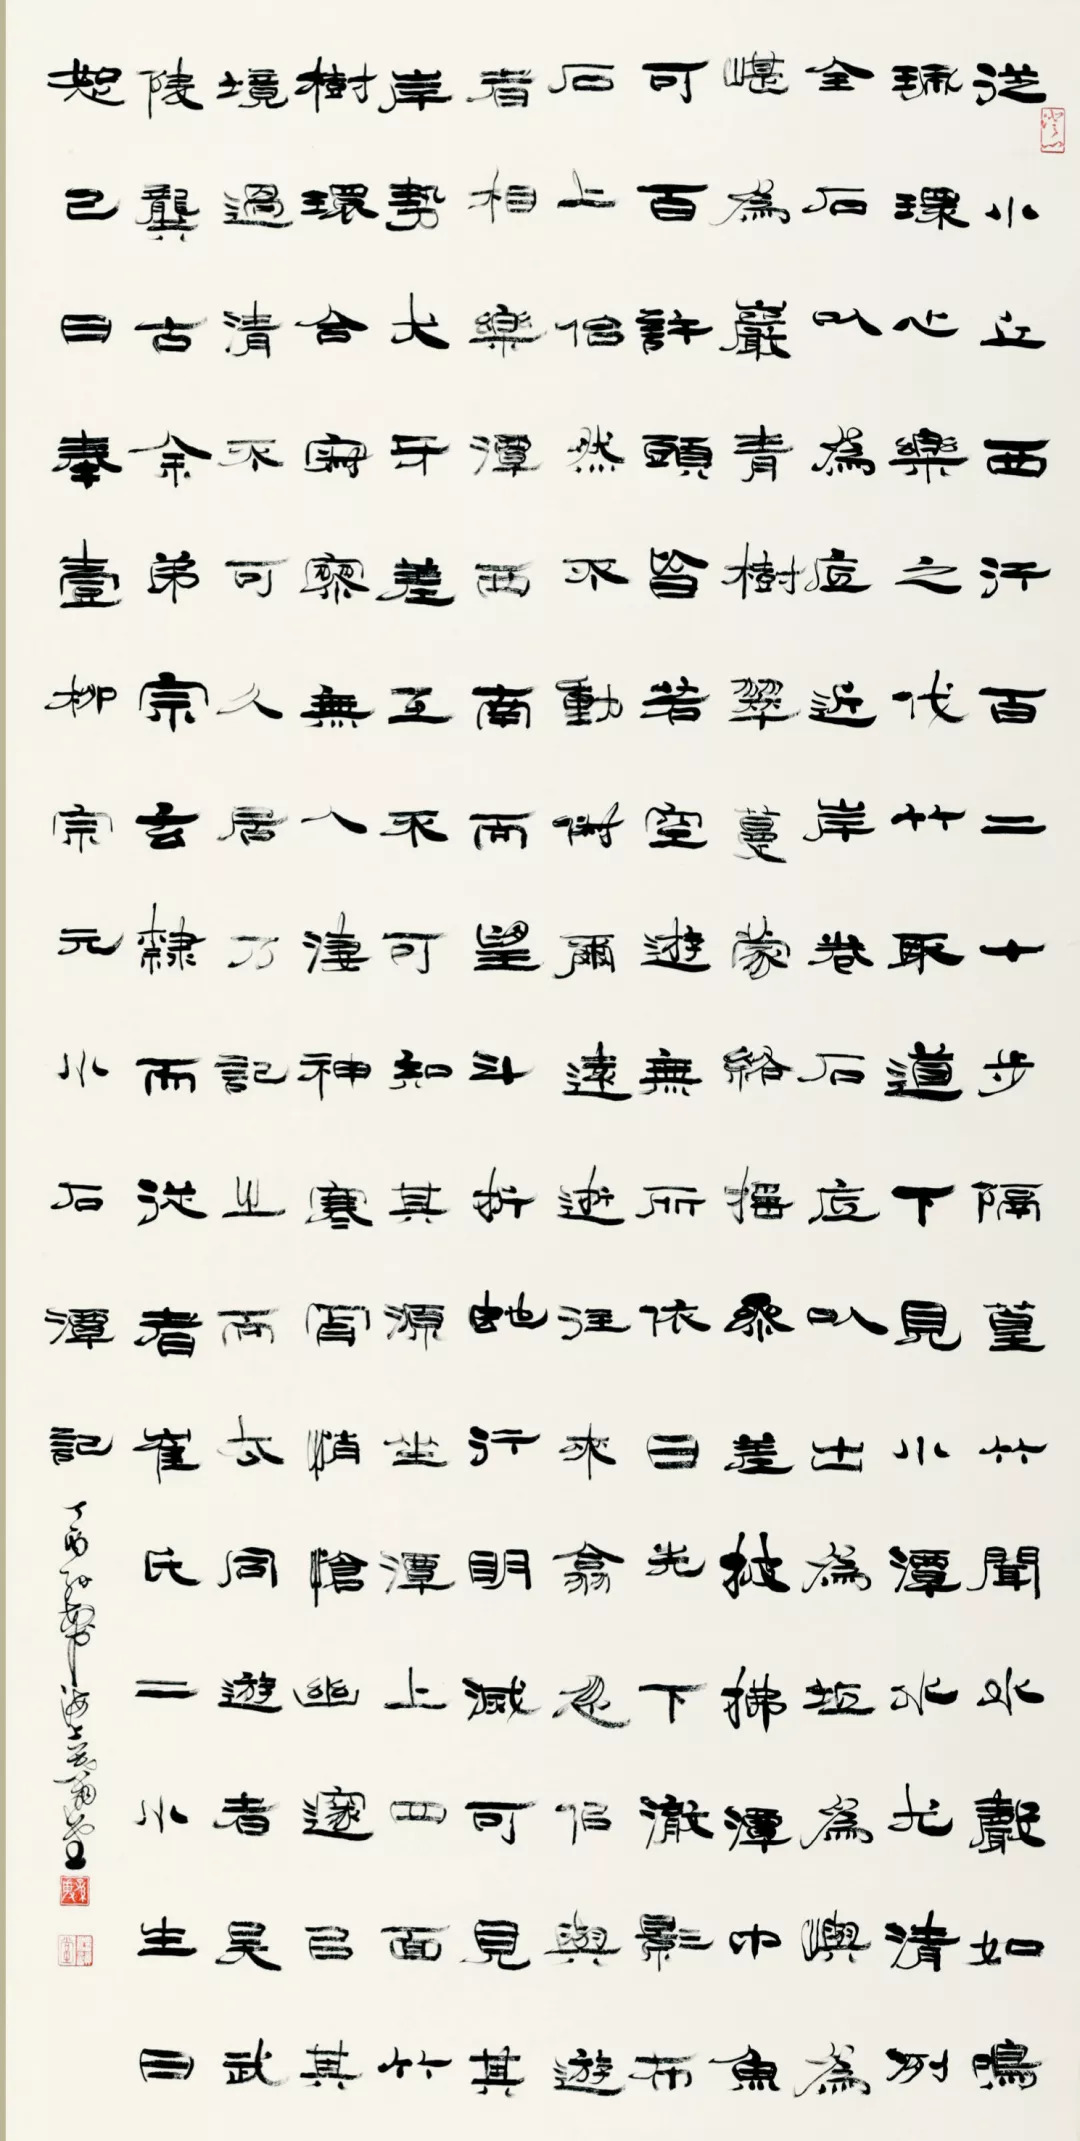 從小丘西行百二十步隔篁竹聞水聲如鳴
珮環心樂之伐竹取道下見小潭水尤清冽
全石以為底近岸卷石底以出為坻為嶼為
嵁為巖青樹翠蔓蒙絡搖參差披拂潭中魚
可百許頭皆若空遊無所依日光下澈影布
石上佁然不動俶爾遠逝往來翕忽佀與遊
者相樂潭西南而望斗折蛇行明滅可見其
岸勢犬牙差互不可知其源坐潭上四面竹
樹環合寂寥無人淒神寒骨悄愴幽邃以其
境過清不可久居乃記之而去同遊者吳武
陵龔古余弟宗玄隸而從者崔氏二小生曰
恕己曰奉壹柳宗元小石潭記
丁酉 海上